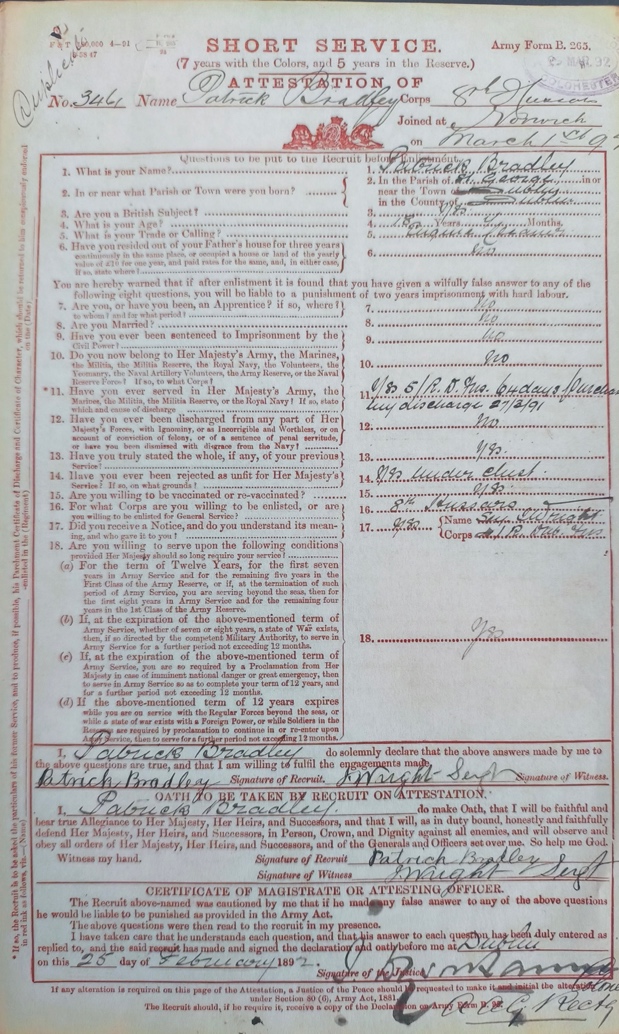 Duplicate
SHORT SERVICE.
Army Form B. 265.
(7 years with the Colors, and 5 years in the Reserve.)
ATTESTATION OF
No. 3461 Name Patrick Bradley Corps 8th Hussars
Joined at Norwich
on March 1st 9
Questions to be put to the Recruit before Enlistment.
1. What is your Name? 1. Patrick Bradley
2. In or near what Parish or Town were you born? 2. In the Parish of St. George in or
near the Town of Dublin
in the County of Dublin
3. Are you a British Subject? 3. Yes
4. What is your Age? 4. 18 Years Months.
5. What is your Trade or Calling? 5.
6. Have you resided out of your Father's house for three years
continuously in the same place, or occupied a house or land of the yearly
value of £10 for one year, and paid rates for the same, and, in either case,
if so, state where? 6. No
You are hereby warned that if after enlistment it is found that you have given a wilfully false answer to any of the
following eight questions, you will be liable to a punishment of two years imprisonment with hard labour.
7. Are you, or have you been, an Apprentice? if so, where?
to whom? and for what period? 7. No
8. Are you Married? 8. No
9. Have you ever been sentenced to Imprisonment by the
Civil Power? 9. No
10. Do you now belong to Her Majesty's Army, the Marines,
the Militia, the Militia Reserve, the Royal Navy, the Volunteers, the
Yeomanry, the Naval Artillery Volunteers, the Army Reserve, or the Naval
Reserve Force? If so, to what Corps? 10. No
*11. Have you ever served in Her Majesty's Army, the
Marines, the Militia, the Militia Reserve, or the Royal Navy? If so, state
which and cause of discharge 11. Yes 5/R. D. Fus. 64 days / Purchase
my discharge 27/2/91
12. Have you ever been discharged from any part of Her
Majesty's Forces, with Ignominy, or as Incorrigible and Worthless, or on
account of conviction of felony, or of a sentence of penal servitude,
or have you been dismissed with disgrace from the Navy? 12. No
13. Have you truly stated the whole, if any, of your previous
Service? 13. Yes.
14. Have you ever been rejected as unfit for Her Majesty's
Service? If so, on what grounds? 14. Yes under chest
15. Are you willing to be vaccinated or re-vaccinated? 15. Yes.
16. For what Corps are you willing to be enlisted, or are
you willing to be enlisted for General Service? 16. 8th Hussars
17. Did you receive a Notice, and do you understand its mean-
ing, and who gave it to you? 17. Yes (Name Sgt Wright
(Corps
18. Are you willing to serve upon the following conditions
provided Her Majesty should so long require your service?
(a) For the term of Twelve Years, for the first seven
years in Army Service and for the remaining five years in the
First Class of the Army Reserve, or if, at the termination of such
period of Army Service, you are serving beyond the seas, then for
the first eight years in Army Service and for the remaining four
years in the 1st Class of the Army Reserve.
(b) If, at the expiration of the above-mentioned term of
Army Service, whether of seven or eight years, a state of War exists,
then, if so directed by the competent Military Authority, to serve in
Army Service for a further period not exceeding 12 months.
(c) If, at the expiration of the above-mentioned term of
Army Service, you are so required by a Proclamation from Her
Majesty in case of imminent national danger or great emergency,
then to serve in Army Service so as to complete your term of 12 years, and
for a further period not exceeding 12 months.
(d) If the above-mentioned term of 12 years expires
while you are on service with the Regular Forces beyond the seas, or
while a state of war exists with a Foreign Power, or while Soldiers in the
Reserve are required by proclamation to continue in or re-enter upon
Army Service, then to serve for a further period not exceeding 12 months.
18. Yes
I, Patrick Bradley do solemnly declare that the above answers made by me to
the above questions are true, and that I am willing to fulfil the engagements made.
Patrick Bradley Signature of Recruit. J Wright Sergt Signature of Witness.
OATH TO BE TAKEN BY RECRUIT ON ATTESTATION.
I, Patrick Bradley. do make Oath, that I will be faithful and
bear true Allegiance to Her Majesty, Her Heirs, and Successors, and that I will, as in duty bound, honestly and faithfully
defend Her Majesty, Her Heirs, and Successors, in Person, Crown, and Dignity against all enemies, and will observe and
obey all orders of Her Majesty, Her Heirs, and Successors, and of the Generals and Officers set over me. So help me God.
Witness my hand. Signature of Recruit Patrick Bradley
Signature of Witness J Wright Sergt
CERTIFICATE OF MAGISTRATE OR ATTESTING OFFICER.
The Recruit above-named was cautioned by me that if he made any false answer to any of the above questions
he would be liable to be punished as provided in the Army Act.
The above questions were then read to the recruit in my presence.
I have taken care that he understands each question, and that his answer to each question has been duly entered as
replied to, and the said recruit has made and signed the declaration and oath before me at Dublin
on this 25 day of February 1892.
Signature of the Justice
If any alteration is required on this page of the Attestation, a Justice of the Peace should be requested to make it and initial the alteration
under Section 80 (6), Army Act, 1881.
The Recruit should, if he require it, receive a copy of the Declaration on Army Form B.